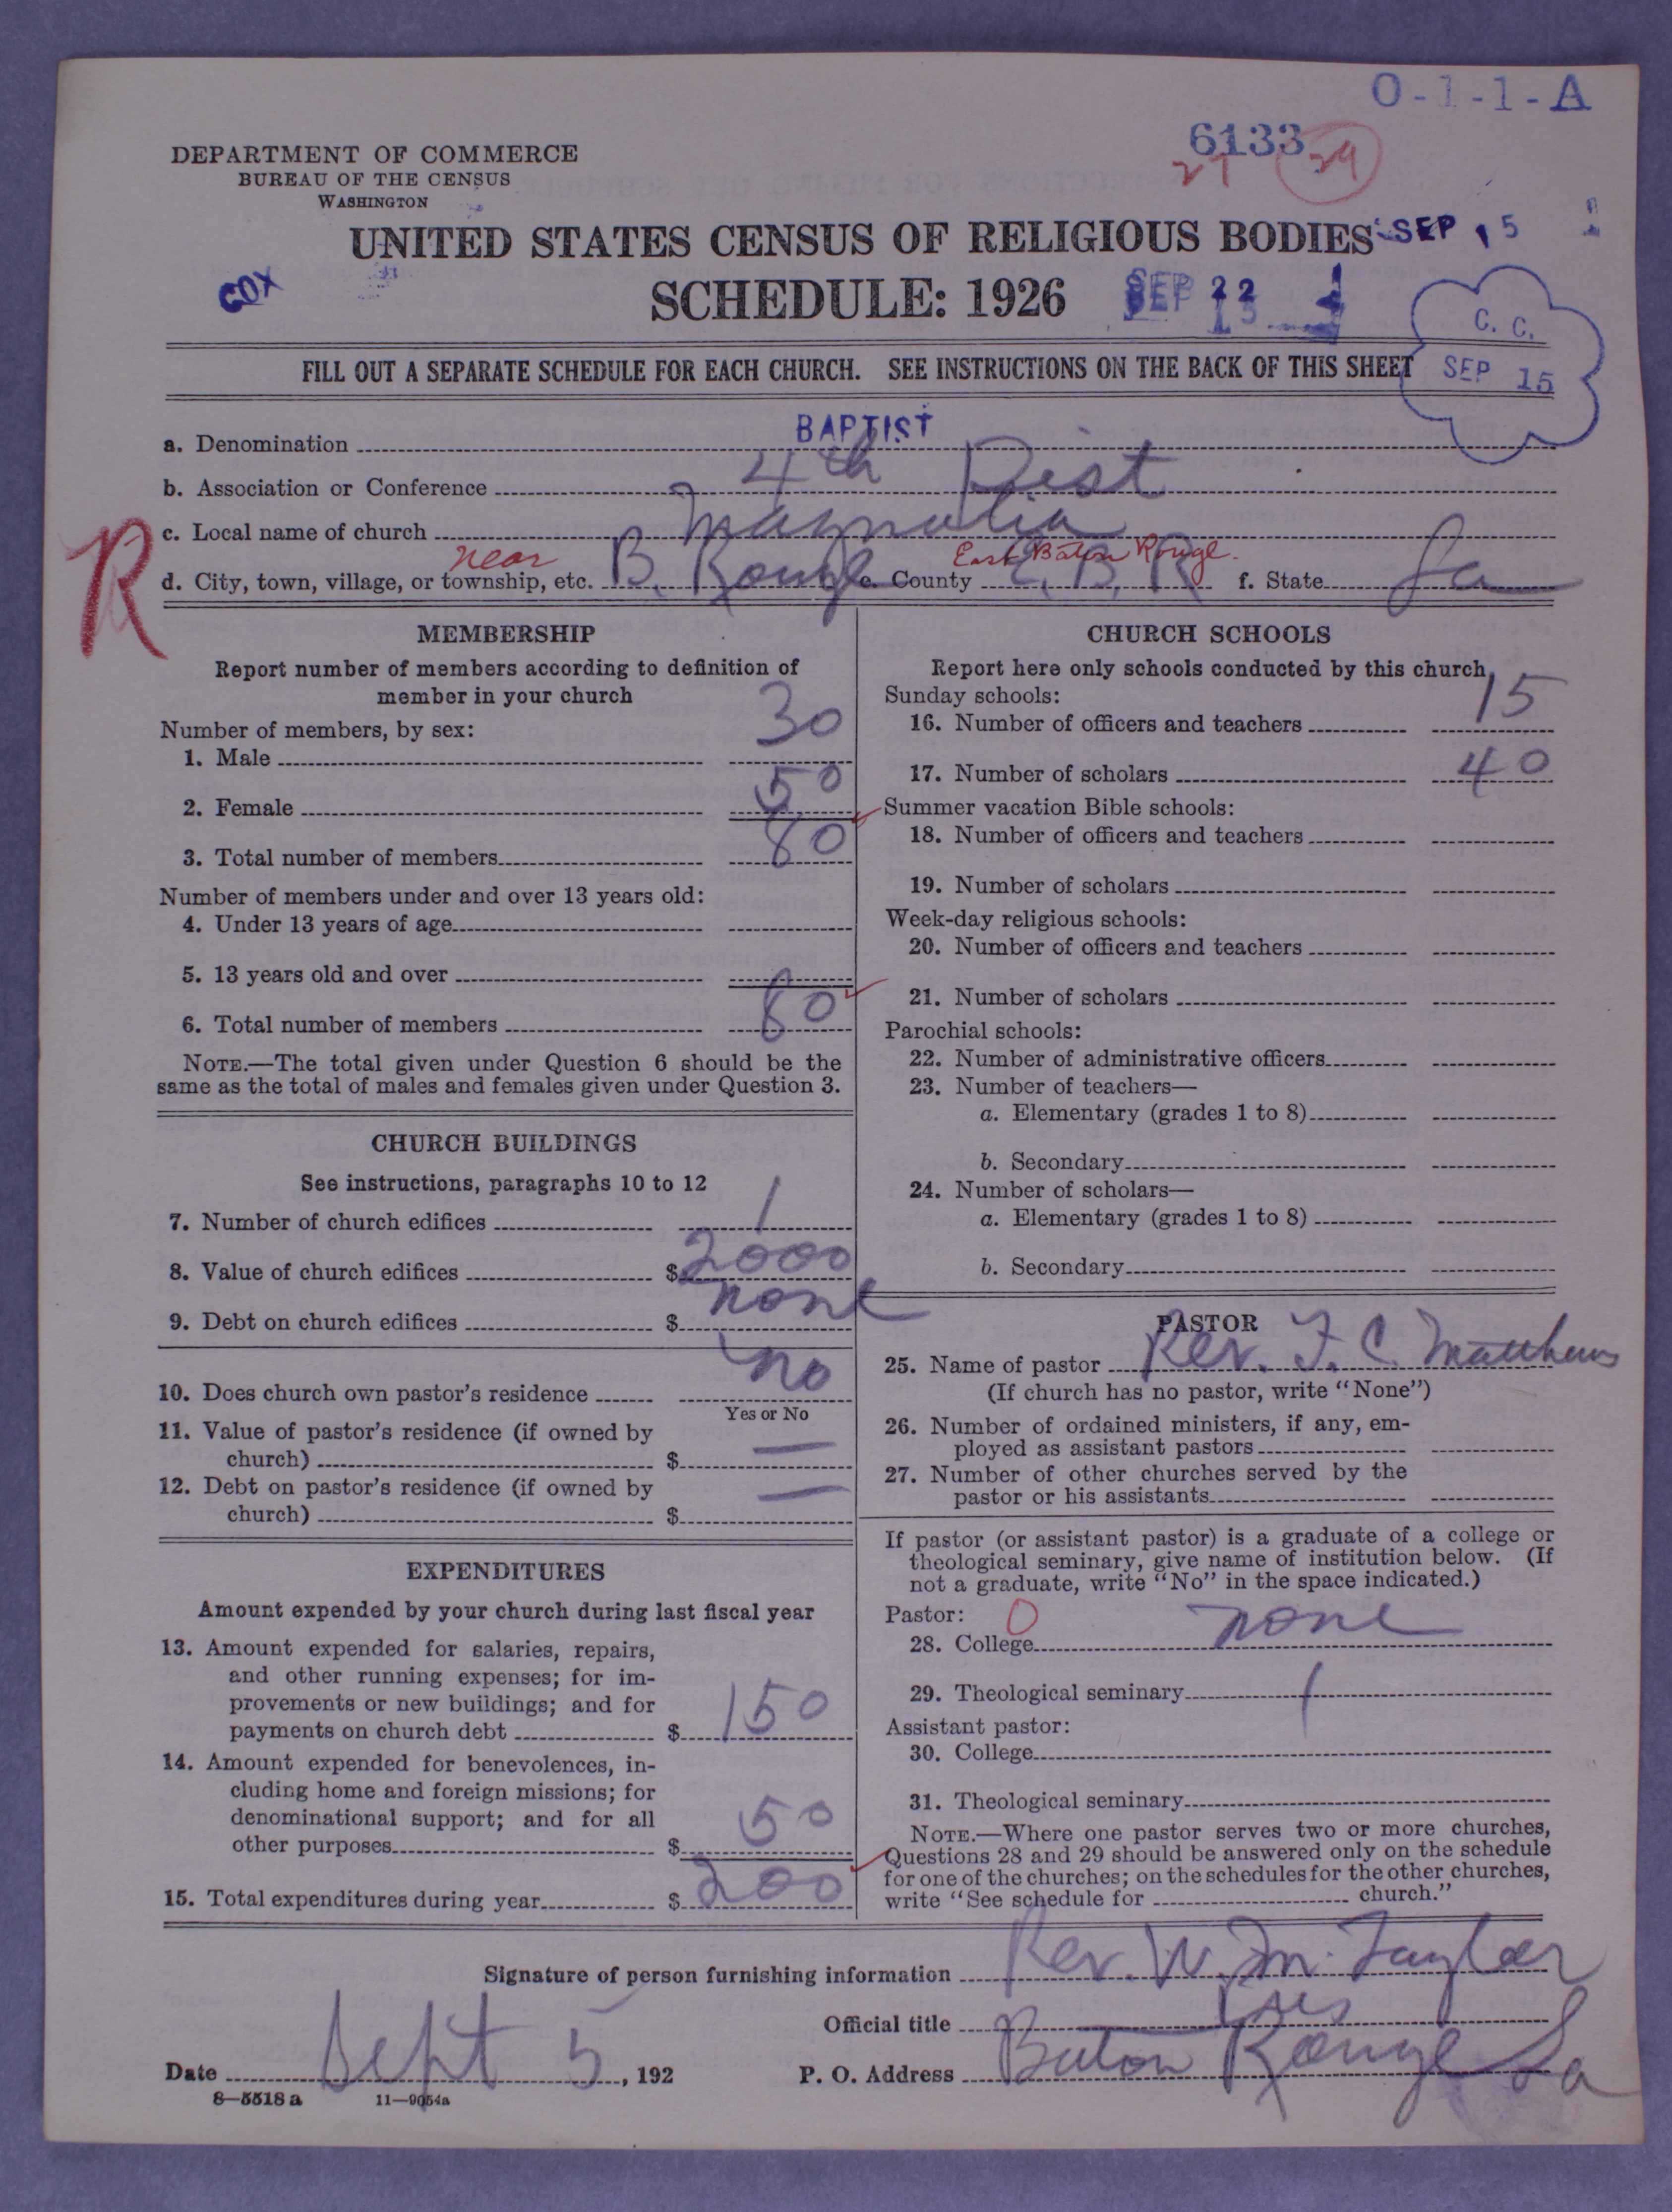 O-1-1-A
6133
27 29
DEPARTMENT OF COMMERCE
BUREAU OF THE CENSUS
WASHINGTON
UNITED STATES CENSUS OF RELIGIOUS BODIES
SEP 15
SCHEDULE: 1926
SEP 22
COX
C. C.
SEP 15
FILL OUT A SEPARATE SCHEDULE FOR EACH CHURCH. SEE INSTRUCTIONS ON THE BACK OF THIS SHEET
a. Denomination BAPTIST
b. Association or Conference 4th Dist
c. Local name of church Magnolia
R
near East Baton Rouge.
d. City, town, village, or township, etc. B. Rouge e. County E. B. R f. State La
MEMBERSHIP
Report number of members according to definition of
member in your church
Number of members, by sex:
1. Male 30
2. Female 50
3. Total number of members 80
Number of members under and over 13 years old:
4. Under 13 years of age
5. 13 years old and over
6. Total number of members 80
NOTE.—The total given under Question 6 should be the
same as the total of males and females given under Question 3.
CHURCH BUILDINGS
See instructions, paragraphs 10 to 12
7. Number of church edifices 1
8. Value of church edifices $ 2000
9. Debt on church edifices $ none
10. Does church own pastor's residence No
Yes or No
11. Value of pastor's residence (if owned by
church) $ —
12. Debt on pastor's residence (if owned by
church) $ —
EXPENDITURES
Amount expended by your church during last fiscal year
13. Amount expended for salaries, repairs,
and other running expenses; for im-
provements or new buildings; and for
payments on church debt $ 150
14. Amount expended for benevolences, in-
cluding home and foreign missions; for
denominational support; and for all
other purposes $ 50
15. Total expenditures during year $ 200
CHURCH SCHOOLS
Report here only schools conducted by this church
Sunday schools:
16. Number of officers and teachers 15
17. Number of scholars 40
Summer vacation Bible schools:
18. Number of officers and teachers
19. Number of scholars
Week-day religious schools:
20. Number of officers and teachers
21. Number of scholars
Parochial schools:
22. Number of administrative officers
23. Number of teachers—
a. Elementary (grades 1 to 8)
b. Secondary
24. Number of scholars—
a. Elementary (grades 1 to 8)
b. Secondary
PASTOR
25. Name of pastor Rev. F. C. Matthews
(If church has no pastor, write "None")
26. Number of ordained ministers, if any, em-
ployed as assistant pastors
27. Number of other churches served by the
pastor or his assistants
If pastor (or assistant pastor) is a graduate of a college or
theological seminary, give name of institution below. (If
not a graduate, write "No" in the space indicated.)
Pastor: 0
28. College none
29. Theological seminary
Assistant pastor:
30. College
31. Theological seminary
NOTE.—Where one pastor serves two or more churches,
Questions 28 and 29 should be answered only on the schedule
for one of the churches; on the schedules for the other churches,
write "See schedule for church."
Signature of person furnishing information Rev. W. M. Taylor
Official title Pres
Date Sept 5, 192
P. O. Address Baton Rouge La
8—5518 a 11—9054a